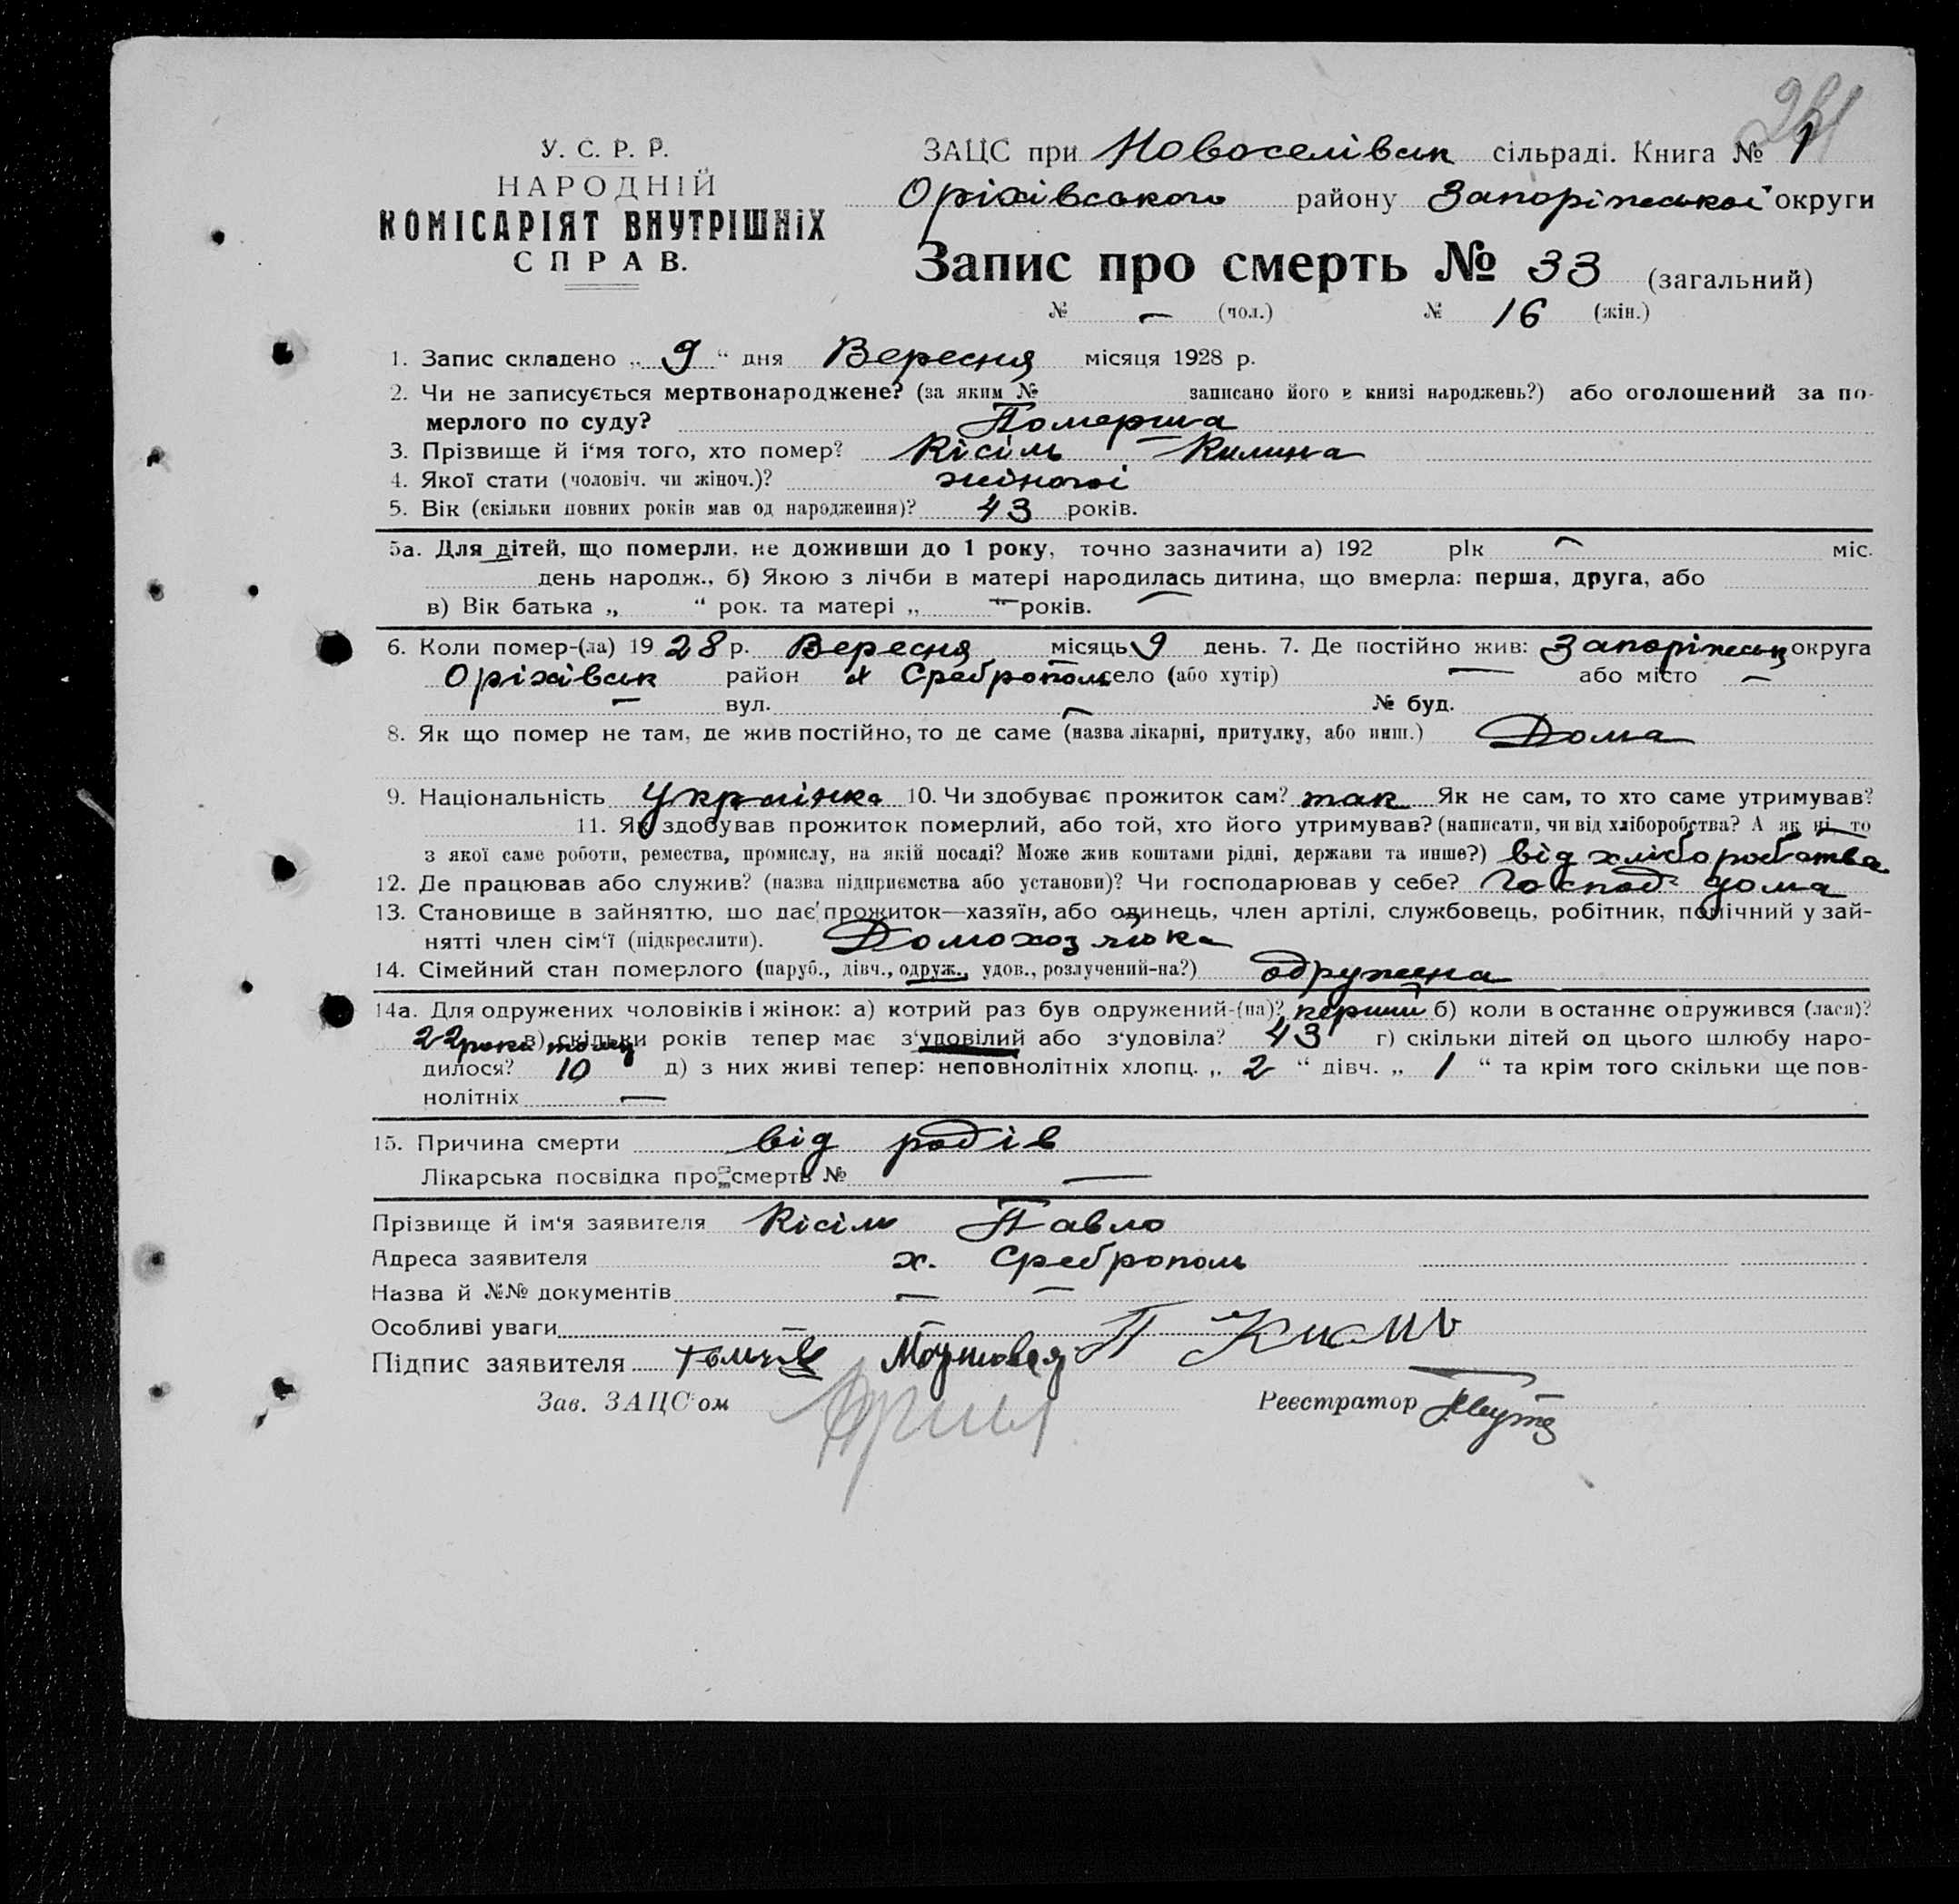 261
У. С. Р. Р.
НАРОДНІЙ
КОМІСАРІЯТ ВНУТРІШНіХ
СПРАВ.
ЗАЦС при Новоселівськ сільраді. Книга № 1
Оріхівського району Запоріжської округи
Запис про смерть № 33 (загальний)
№ — (чол.) № 16 (жін.)
1. Запис складено „ 9 “ дня Вересня місяця 1928 р.
2. Чи не записується мертвонароджене? (за яким № записано його в книзі народжень?) або оголошений за по-
мерлого по суду? Померша
3. Прізвище й і‘мя того, хто помер? Кісіль Килина
4. Якої стати (чоловіч. чи жіноч.)? жіночоі
5. Вік (скільки повних років мав од народження)? 43 років.
5а. Для дітей, що померли, не доживши до 1 року, точно зазначити а) 192 рік — міс.
день народж., б) Якою з лічби в матері народилась дитина, що вмерла: перша, друга, або
в) Вік батька „ “ рок. та матері „ “ років.
6. Коли помер-(ла) 1928 р. Вересня місяць 9 день. 7. Де постійно жив: Запоріжськ округа
Оріхівськ район х Среброполь село (або хутір) — або місто —
— вул. — № буд.
8. Як що помер не там, де жив постійно, то де саме (назва лікарні, притулку, або инш.) Дома
9. Національність Украінка 10. Чи здобуває прожиток сам? так Як не сам, то хто саме утримував?
11. Як здобував прожиток померлий, або той, хто його утримував? (написати, чи від хліборобства? А як ні, то
з якої саме роботи, ремества, промислу, на якій посаді? Може жив коштами рідні, держави та инше?) від хліборобства
12. Де працював або служив? (назва підприємства або установи)? Чи господарював у себе? Господ дома
13. Становище в зайняттю, що дає прожиток—хазяїн, або одинець, член артілі, службовець, робітник, помічний у зай-
нятті член сім‘ї (підкреслити). Домохозяйка
14. Сімейний стан померлого (паруб., дівч., одруж., удов., розлучений-на?) одружена
14а. Для одружених чоловіків і жінок: а) котрий раз був одружений-(на)? перший б) коли востаннє одружився (лася)?
22 роки тому в) скільки років тепер має з‘удовілий або з‘удовіла? 43 г) скільки дітей од цього шлюбу наро-
дилося? 10 д) з них живі тепер: неповнолітніх хлопц. „ 2 “ дівч. „ 1 “ та крім того скільки ще пов-
нолітніх —
15. Причина смерти від родів
Лікарська посвідка про смерть № —
Прізвище й ім‘я заявителя Кісіль Павло
Адреса заявителя х. Среброполь
Назва й №№ документів — —
Особливі уваги — —
Підпис заявителя П Кисиль
Зав. ЗАЦС‘ом Реєстратор